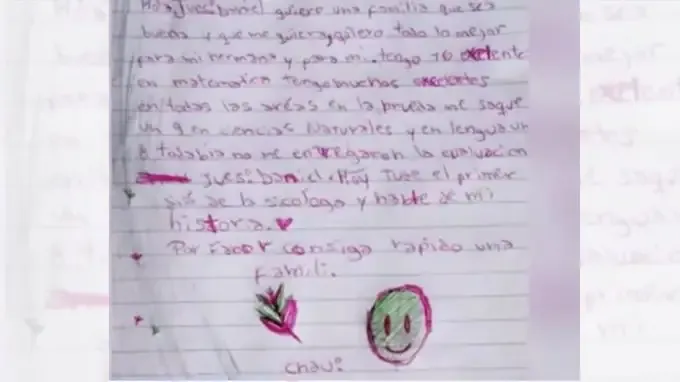 quiero una familia que sea
buena y que me quiera y quiero todo lo mejor
para mi hermana y para mi. tengo 10 exelente
en matematica tengo muchos execentes
en todas las areas en la prueba me saque
un 9 en ciencias Naturales y en lengua un
8 todabia no me entregaron la evaluacion
Jues: Daniel. Hoy Tuve el primer
de la sicologa y hable de mi
historia.
Por Facor consiga rapido una
famili.
chau: